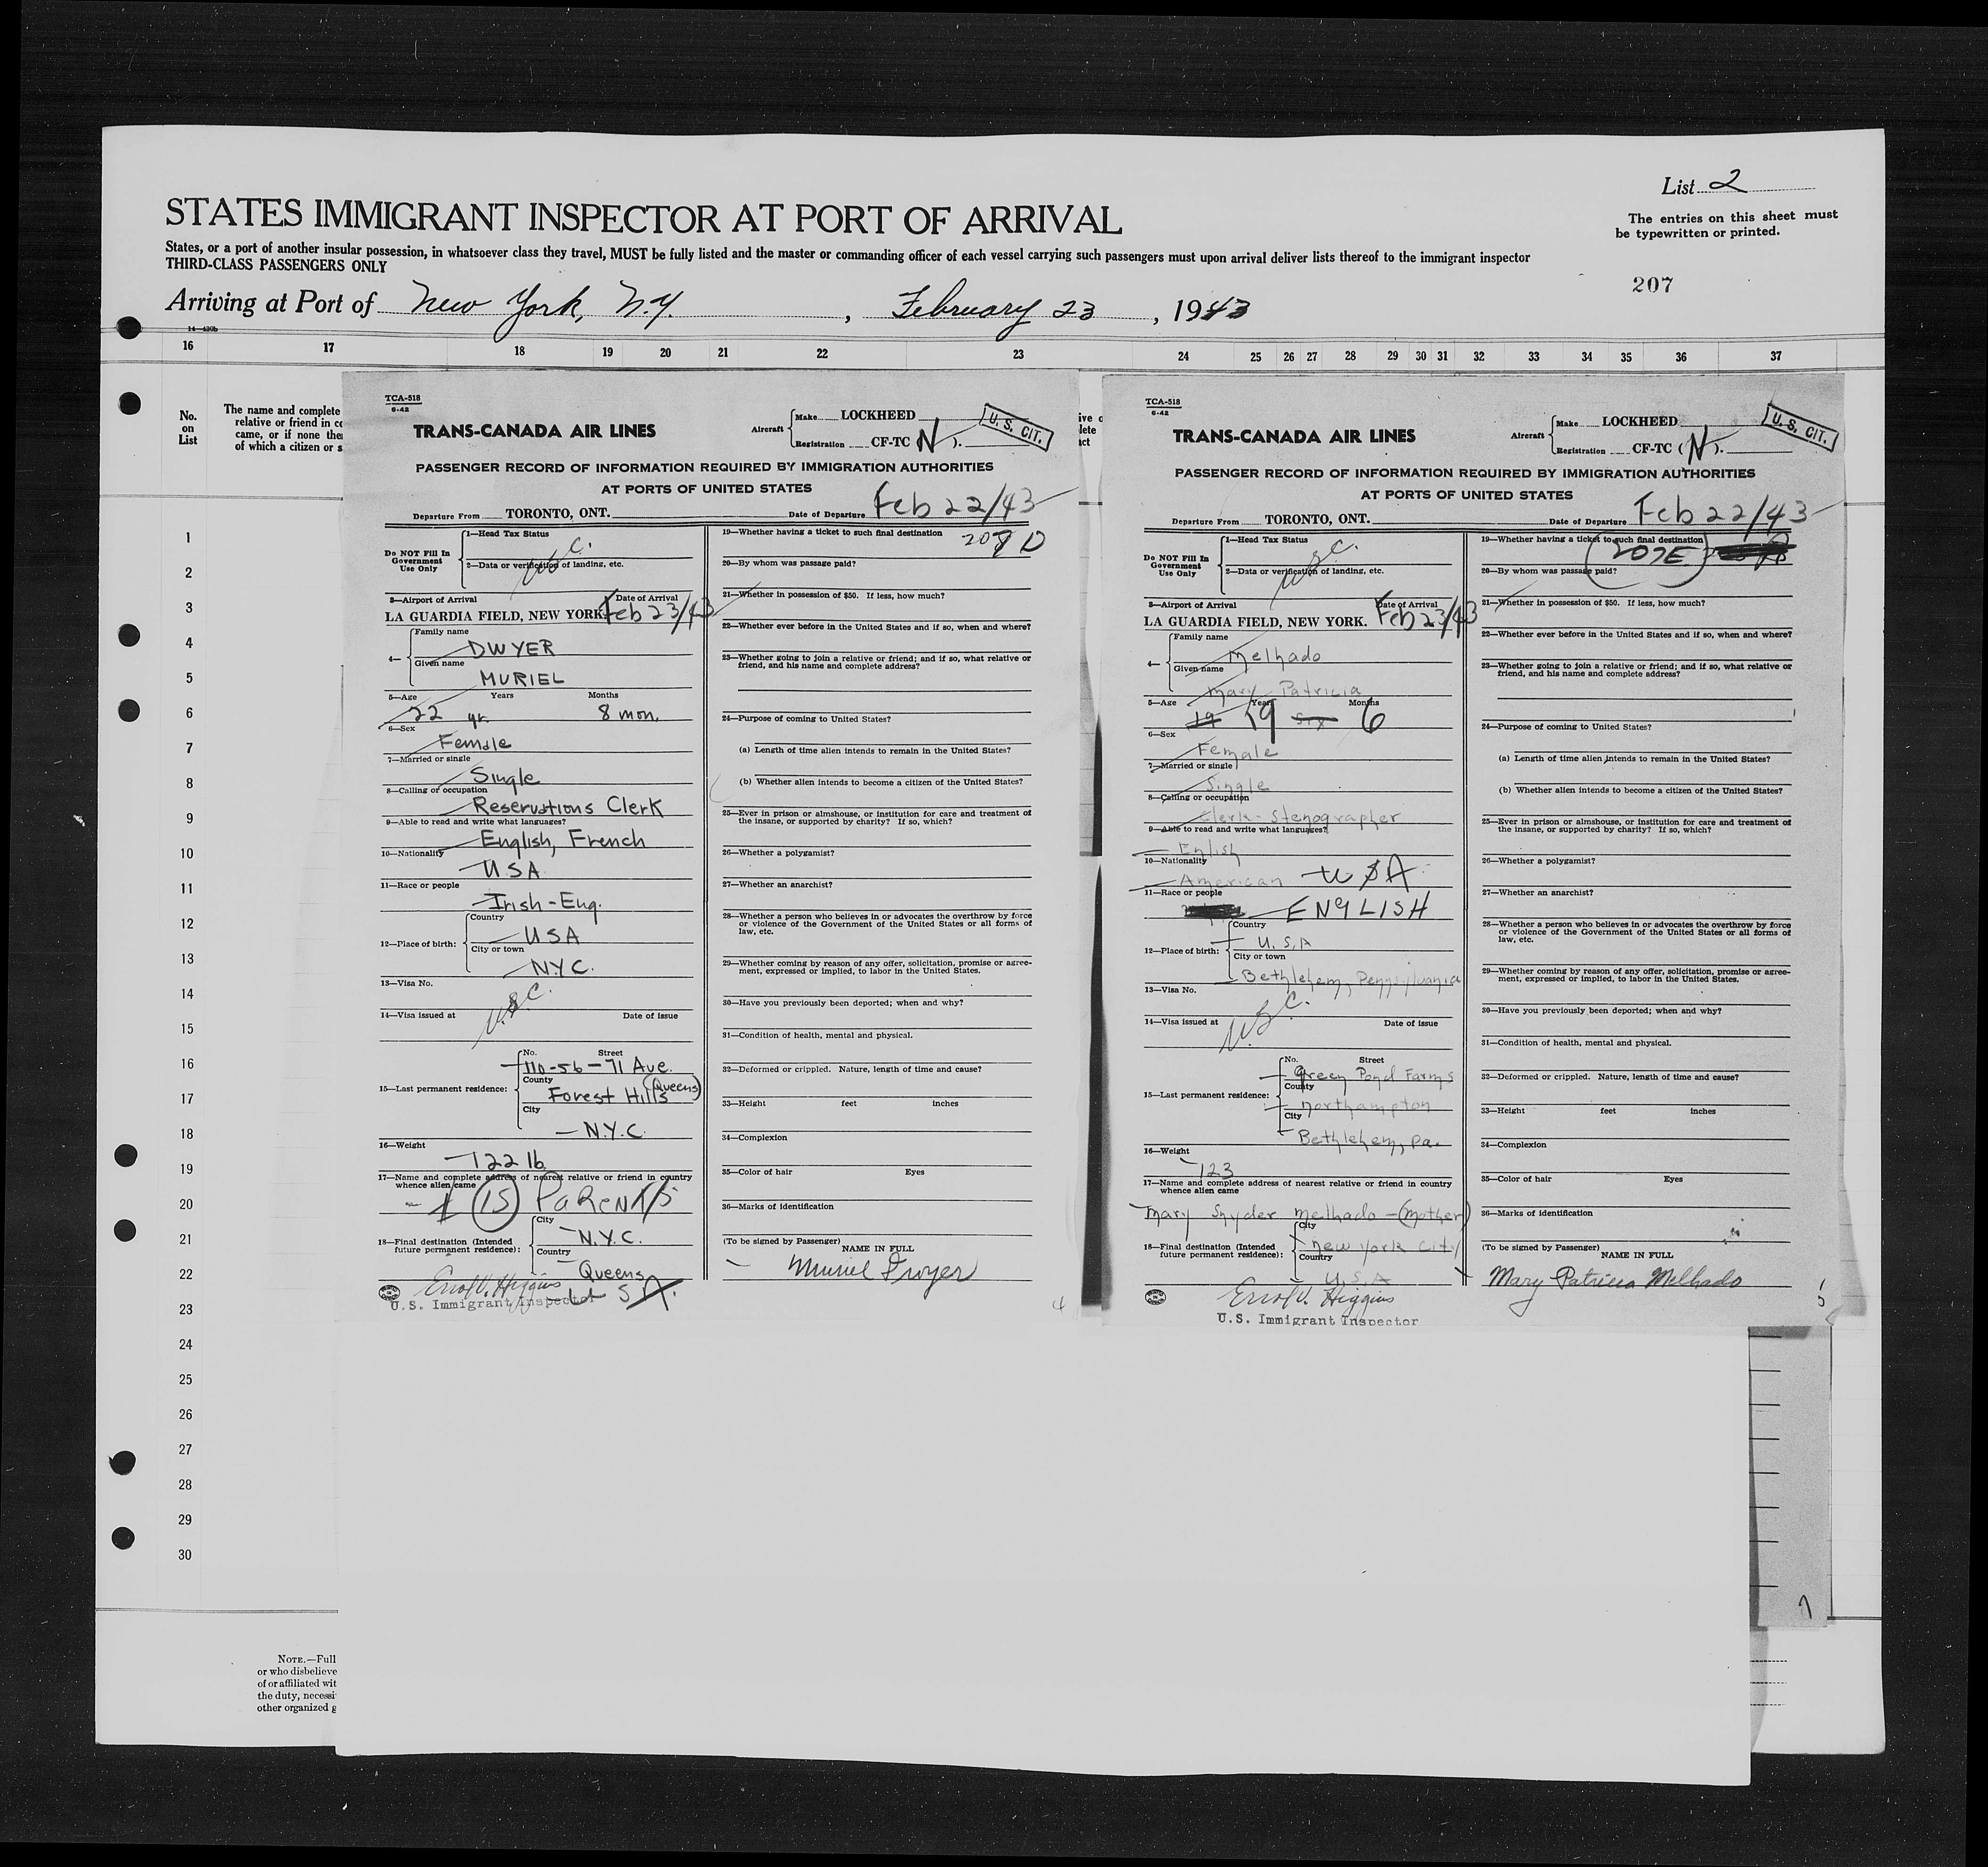 List 2
STATES IMMIGRANT INSPECTOR AT PORT OF ARRIVAL
The entries on this sheet must
be typewritten or printed.
States, or a port of another insular possession, in whatsoever class they travel, MUST be fully listed and the master or commanding officer of each vessel carrying such passengers must upon arrival deliver lists thereof to the immigrant inspector
THIRD-CLASS PASSENGERS ONLY
207
Arriving at Port of New York, N.Y. , February 23 , 1943
16 17 18 19 20 21 22 23 24 25 26 27 28 29 30 31 32 33 34 35 36 37
No.
on
List
The name and complete
relative or friend in
came, or if none
of which a citizen or s
1
2
3
4
5
6
7
8
9
10
11
12
13
14
15
16
17
18
19
20
21
22
23
24
25
26
27
28
29
30
NOTE.—Full
or who disbelieve
of or affiliated wit
the duty, necessi
other organized g
TCA-518
6-42
TRANS-CANADA AIR LINES
Aircraft
Make LOCKHEED
Registration CF-TC N ).
U. S. CIT.
PASSENGER RECORD OF INFORMATION REQUIRED BY IMMIGRATION AUTHORITIES
AT PORTS OF UNITED STATES
Departure From TORONTO, ONT. Date of Departure Feb 22/43
Do NOT Fill In
Government
Use Only
1—Head Tax Status
2—Data or verification of landing, etc.
3—Airport of Arrival Date of Arrival
LA GUARDIA FIELD, NEW YORK. Feb 23/43
4—
Family name
DWYER
Given name
MURIEL
5—Age Years Months
22 yr. 8 mon.
6—Sex
Female
7—Married or single
Single
8—Calling or occupation
Reservations Clerk
9—Able to read and write what languages?
English, French
10—Nationality
USA
11—Race or people
Irish-Eng.
12—Place of birth:
Country
USA
City or town
N.Y.C.
13—Visa No.
U.S.C.
14—Visa issued at Date of issue
15—Last permanent residence:
No. Street
110-56-71 Ave.
County
Forest Hills (Queens)
City
N.Y.C.
16—Weight
122 lb.
17—Name and complete address of nearest relative or friend in country
whence alien came
(15) PARENTS
18—Final destination (Intended
future permanent residence):
City
N.Y.C.
Country
Queens
Errol V. Higgins
U.S. Immigrant Inspector
19—Whether having a ticket to such final destination
207 D
20—By whom was passage paid?
21—Whether in possession of $50. If less, how much?
22—Whether ever before in the United States and if so, when and where?
23—Whether going to join a relative or friend; and if so, what relative or
friend, and his name and complete address?
24—Purpose of coming to United States?
(a) Length of time alien intends to remain in the United States?
(b) Whether alien intends to become a citizen of the United States?
25—Ever in prison or almshouse, or institution for care and treatment of
the insane, or supported by charity? If so, which?
26—Whether a polygamist?
27—Whether an anarchist?
28—Whether a person who believes in or advocates the overthrow by force
or violence of the Government of the United States or all forms of
law, etc.
29—Whether coming by reason of any offer, solicitation, promise or agree-
ment, expressed or implied, to labor in the United States.
30—Have you previously been deported; when and why?
31—Condition of health, mental and physical.
32—Deformed or crippled. Nature, length of time and cause?
33—Height feet inches
34—Complexion
35—Color of hair Eyes
36—Marks of identification
(To be signed by Passenger)
NAME IN FULL
Muriel Dwyer
TCA-518
6-42
TRANS-CANADA AIR LINES
Aircraft
Make LOCKHEED
Registration CF-TC (N).
U. S. CIT.
PASSENGER RECORD OF INFORMATION REQUIRED BY IMMIGRATION AUTHORITIES
AT PORTS OF UNITED STATES
Departure From TORONTO, ONT. Date of Departure Feb 22/43
Do NOT Fill In
Government
Use Only
1—Head Tax Status
USC.
2—Data or verification of landing, etc.
3—Airport of Arrival Date of Arrival
LA GUARDIA FIELD, NEW YORK. Feb 23/43
4—
Family name
Melhado
Given name
Mary Patricia
5—Age Years Months
19 19 six 6
6—Sex
Female
7—Married or single
Single
8—Calling or occupation
Clerk-Stenographer
9—Able to read and write what languages?
Enlish
10—Nationality
American USA
11—Race or people
ENGLISH
12—Place of birth:
Country
U.S.A
City or town
Bethlehem, Pennsylvania
13—Visa No.
U.S.C.
14—Visa issued at Date of issue
15—Last permanent residence:
No. Street
Green Pond Farms
County
Northampton
City
Bethlehem, Pa.
16—Weight
123
17—Name and complete address of nearest relative or friend in country
whence alien came
Mary Snyder Melhado - (Mother)
18—Final destination (Intended
future permanent residence):
City
New York City
Country
U.S.A
Errol V. Higgins
U.S. Immigrant Inspector
19—Whether having a ticket to such final destination
207E
20—By whom was passage paid?
21—Whether in possession of $50. If less, how much?
22—Whether ever before in the United States and if so, when and where?
23—Whether going to join a relative or friend; and if so, what relative or
friend, and his name and complete address?
24—Purpose of coming to United States?
(a) Length of time alien intends to remain in the United States?
(b) Whether alien intends to become a citizen of the United States?
25—Ever in prison or almshouse, or institution for care and treatment of
the insane, or supported by charity? If so, which?
26—Whether a polygamist?
27—Whether an anarchist?
28—Whether a person who believes in or advocates the overthrow by force
or violence of the Government of the United States or all forms of
law, etc.
29—Whether coming by reason of any offer, solicitation, promise or agree-
ment, expressed or implied, to labor in the United States.
30—Have you previously been deported; when and why?
31—Condition of health, mental and physical.
32—Deformed or crippled. Nature, length of time and cause?
33—Height feet inches
34—Complexion
35—Color of hair Eyes
36—Marks of identification
(To be signed by Passenger)
NAME IN FULL
Mary Patricia Melhado